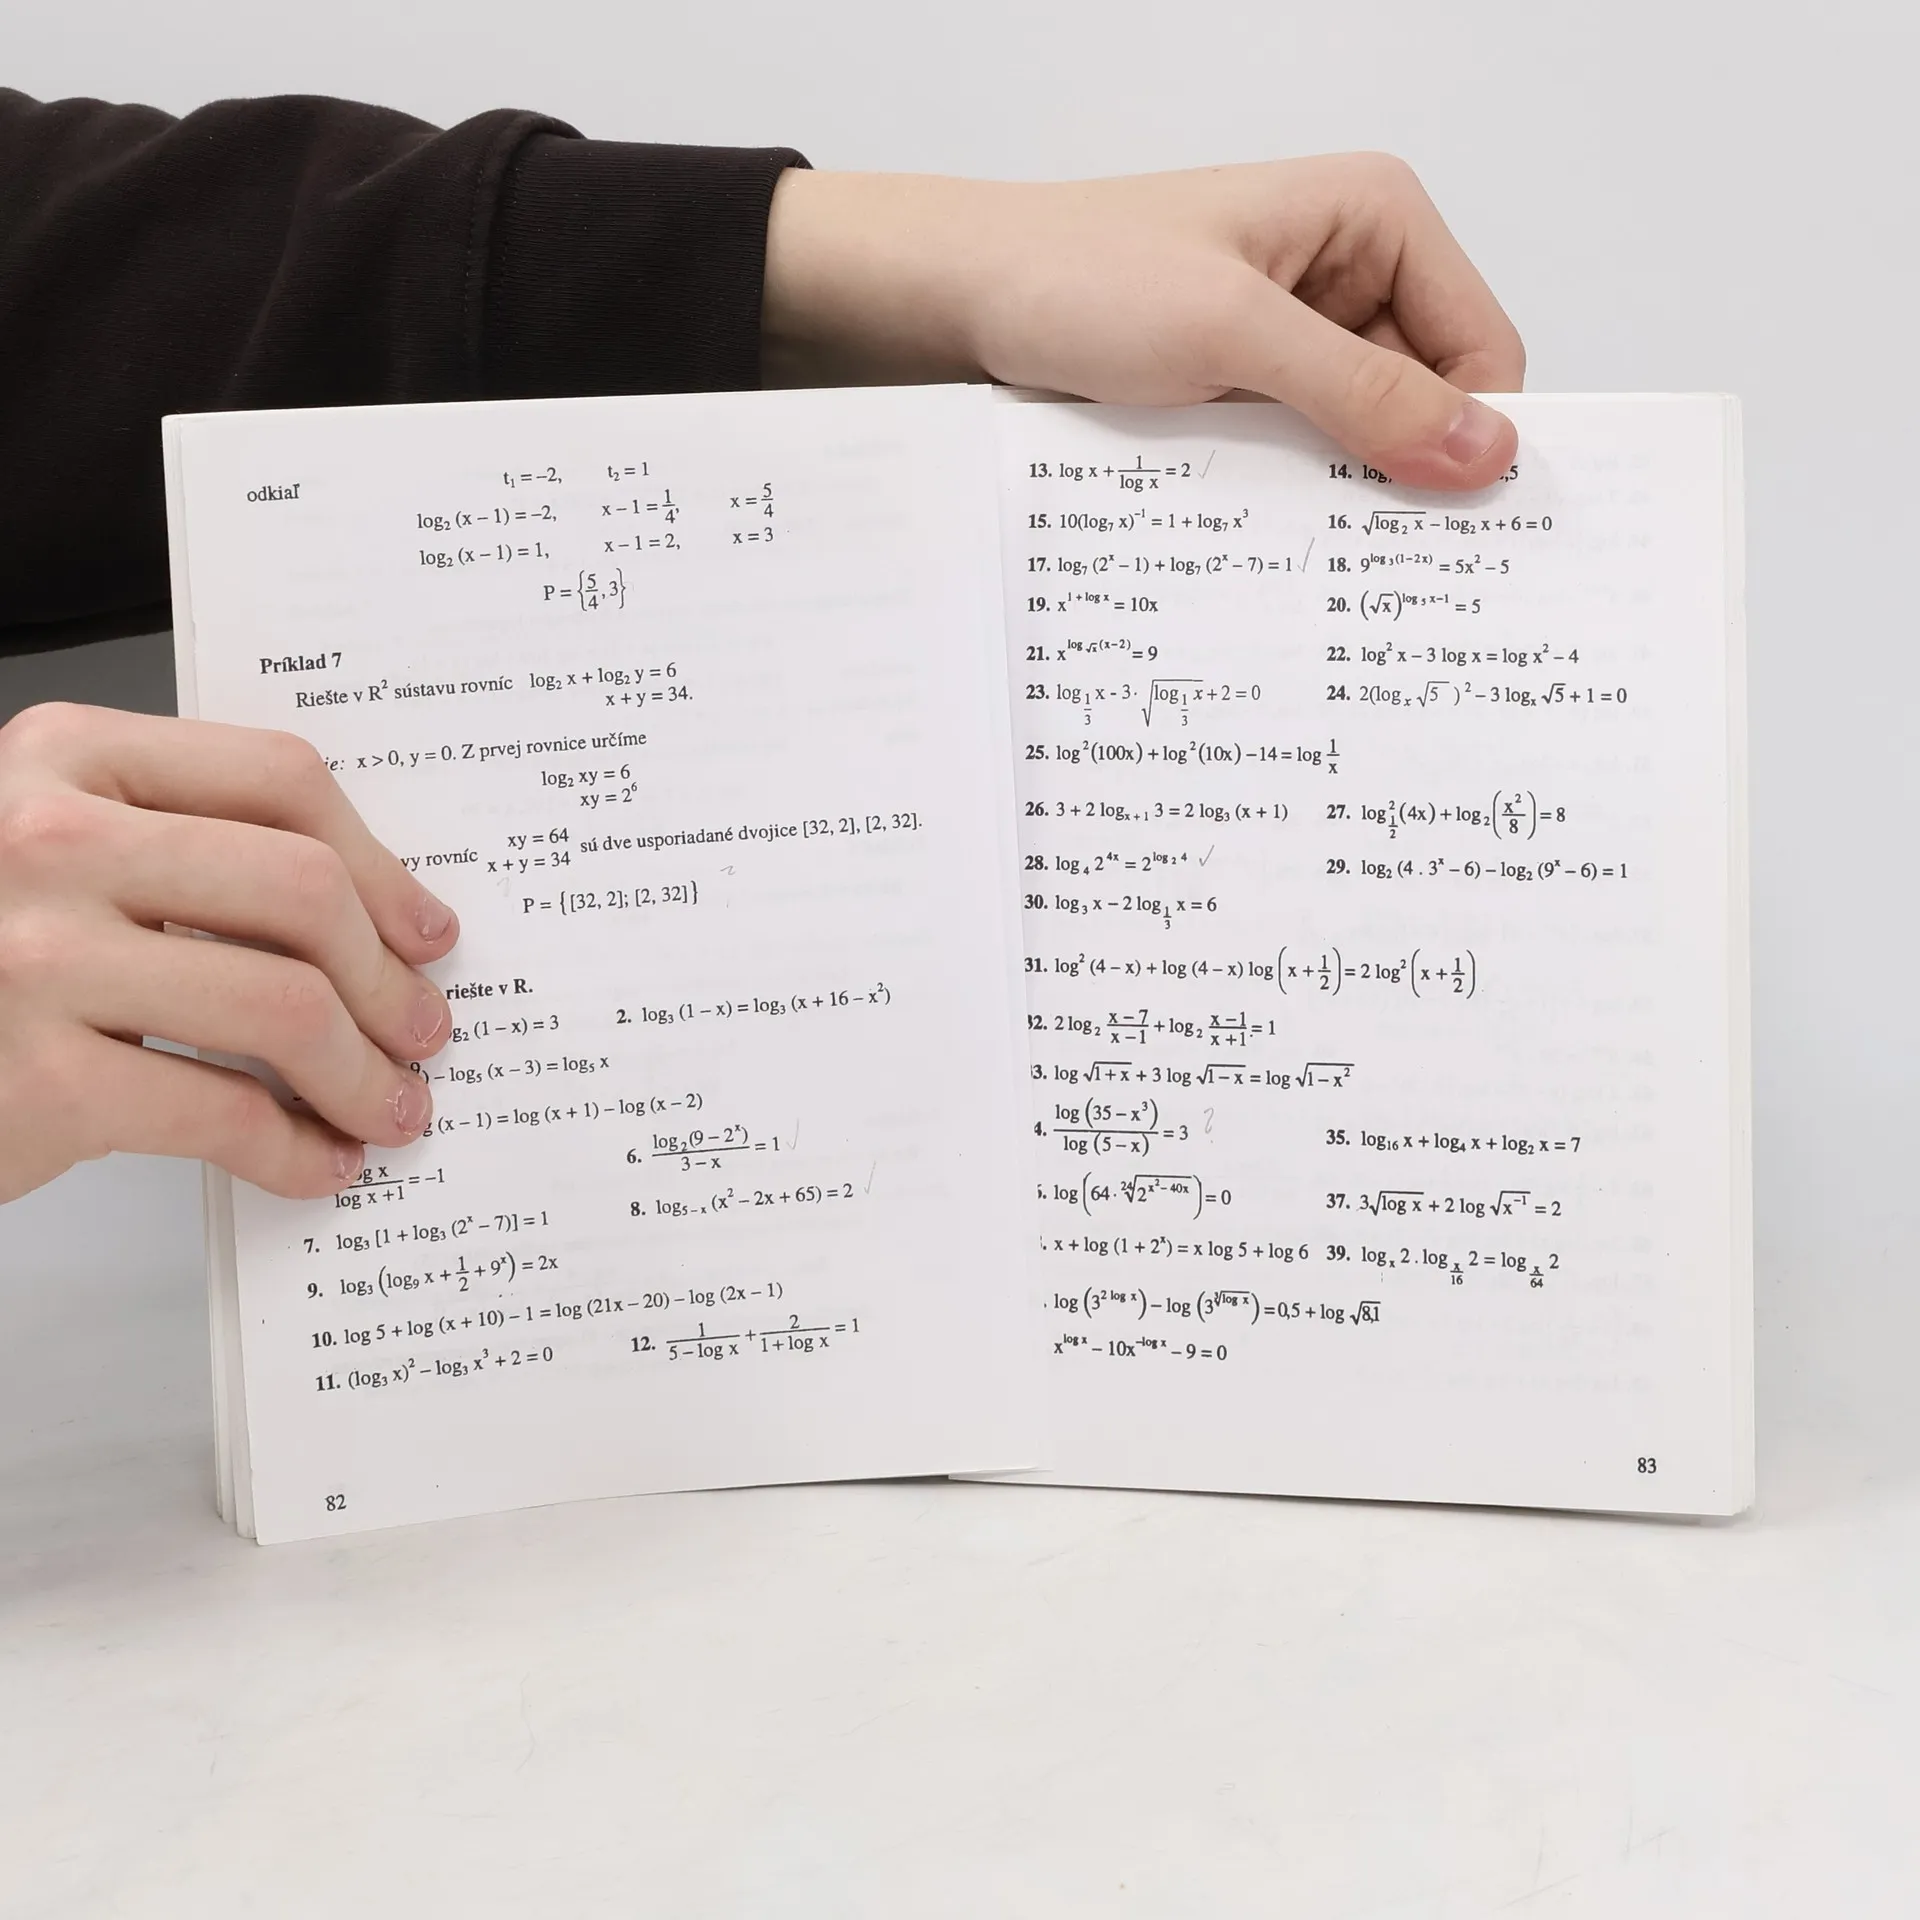 odkiaľ
t₁ = –2, t₂ = 1
log₂ (x – 1) = –2, x – 1 = 1/4, x = 5/4
log₂ (x – 1) = 1, x – 1 = 2, x = 3
P = {5/4, 3}
Príklad 7
Riešte v R² sústavu rovníc log₂ x + log₂ y = 6
x + y = 34.
x > 0, y = 0. Z prvej rovnice určíme
log₂ xy = 6
xy = 2⁶
xy = 64
rovníc x + y = 34 sú dve usporiadané dvojice [32, 2], [2, 32].
P = {[32, 2]; [2, 32]}
riešte v R.
(1 – x) = 3 2. log₃ (1 – x) = log₃ (x + 16 – x²)
– log₅ (x – 3) = log₅ x
(x – 1) = log (x + 1) – log (x – 2)
x / (log x + 1) = –1 6. log₂(9 – 2ˣ) / (3 – x) = 1
7. log₃ [1 + log₃ (2ˣ – 7)] = 1 8. log₅₋ₓ (x² – 2x + 65) = 2
9. log₃ (log₉ x + 1/2 + 9ˣ) = 2x
10. log 5 + log (x + 10) – 1 = log (21x – 20) – log (2x – 1)
11. (log₃ x)² – log₃ x³ + 2 = 0 12. 1/(5 – log x) + 2/(1 + log x) = 1
82
13. log x + 1/(log x) = 2 14.
15. 10(log₇ x)⁻¹ = 1 + log₇ x³ 16. √(log₂ x) – log₂ x + 6 = 0
17. log₇ (2ˣ – 1) + log₇ (2ˣ – 7) = 1 18. 9^(log₃(1–2x)) = 5x² – 5
19. x^(1 + log x) = 10x 20. (√x)^(log₅ x–1) = 5
21. x^(log_√x (x–2)) = 9 22. log² x – 3 log x = log x² – 4
23. log_(1/3) x - 3 · √(log_(1/3) x) + 2 = 0 24. 2(logₓ √5)² – 3 logₓ √5 + 1 = 0
25. log²(100x) + log²(10x) – 14 = log 1/x
26. 3 + 2 logₓ₊₁ 3 = 2 log₃ (x + 1) 27. log²_(1/2)(4x) + log₂(x²/8) = 8
28. log₄ 2⁴ˣ = 2^(log₂ 4) 29. log₂ (4 . 3ˣ – 6) – log₂ (9ˣ – 6) = 1
30. log₃ x – 2 log_(1/3) x = 6
31. log² (4 – x) + log (4 – x) log (x + 1/2) = 2 log² (x + 1/2)
32. 2 log₂ (x – 7)/(x – 1) + log₂ (x – 1)/(x + 1) = 1
3. log √(1 + x) + 3 log √(1 – x) = log √(1 – x²)
4. log (35 – x³) / log (5 – x) = 3 ? 35. log₁₆ x + log₄ x + log₂ x = 7
log (64 · ²⁴√(2^(x² – 40x))) = 0 37. 3√(log x) + 2 log √(x⁻¹) = 2
x + log (1 + 2ˣ) = x log 5 + log 6 39. logₓ 2 . log_(x/16) 2 = log_(x/64) 2
log (3^(2 log x)) – log (3^(∛(log x))) = 0,5 + log √8,1
x^(log x) – 10x^(–log x) – 9 = 0
83